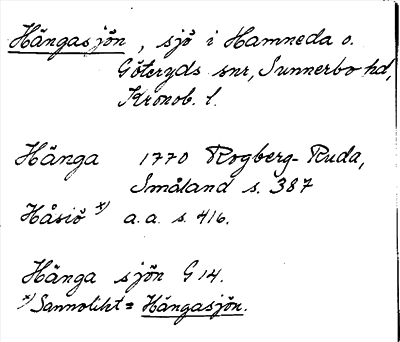 Hängasjön, sjö i Hamneda o.
Göteryds snr, Sunnerbo hd,
Kronob. l.
Hänga 1770 Rogberg-Ruda,
Småland s. 387
Håsiö x) a.a. s. 416.
Hänga sjön G 14.
x) Sannolikt = Hängasjön.